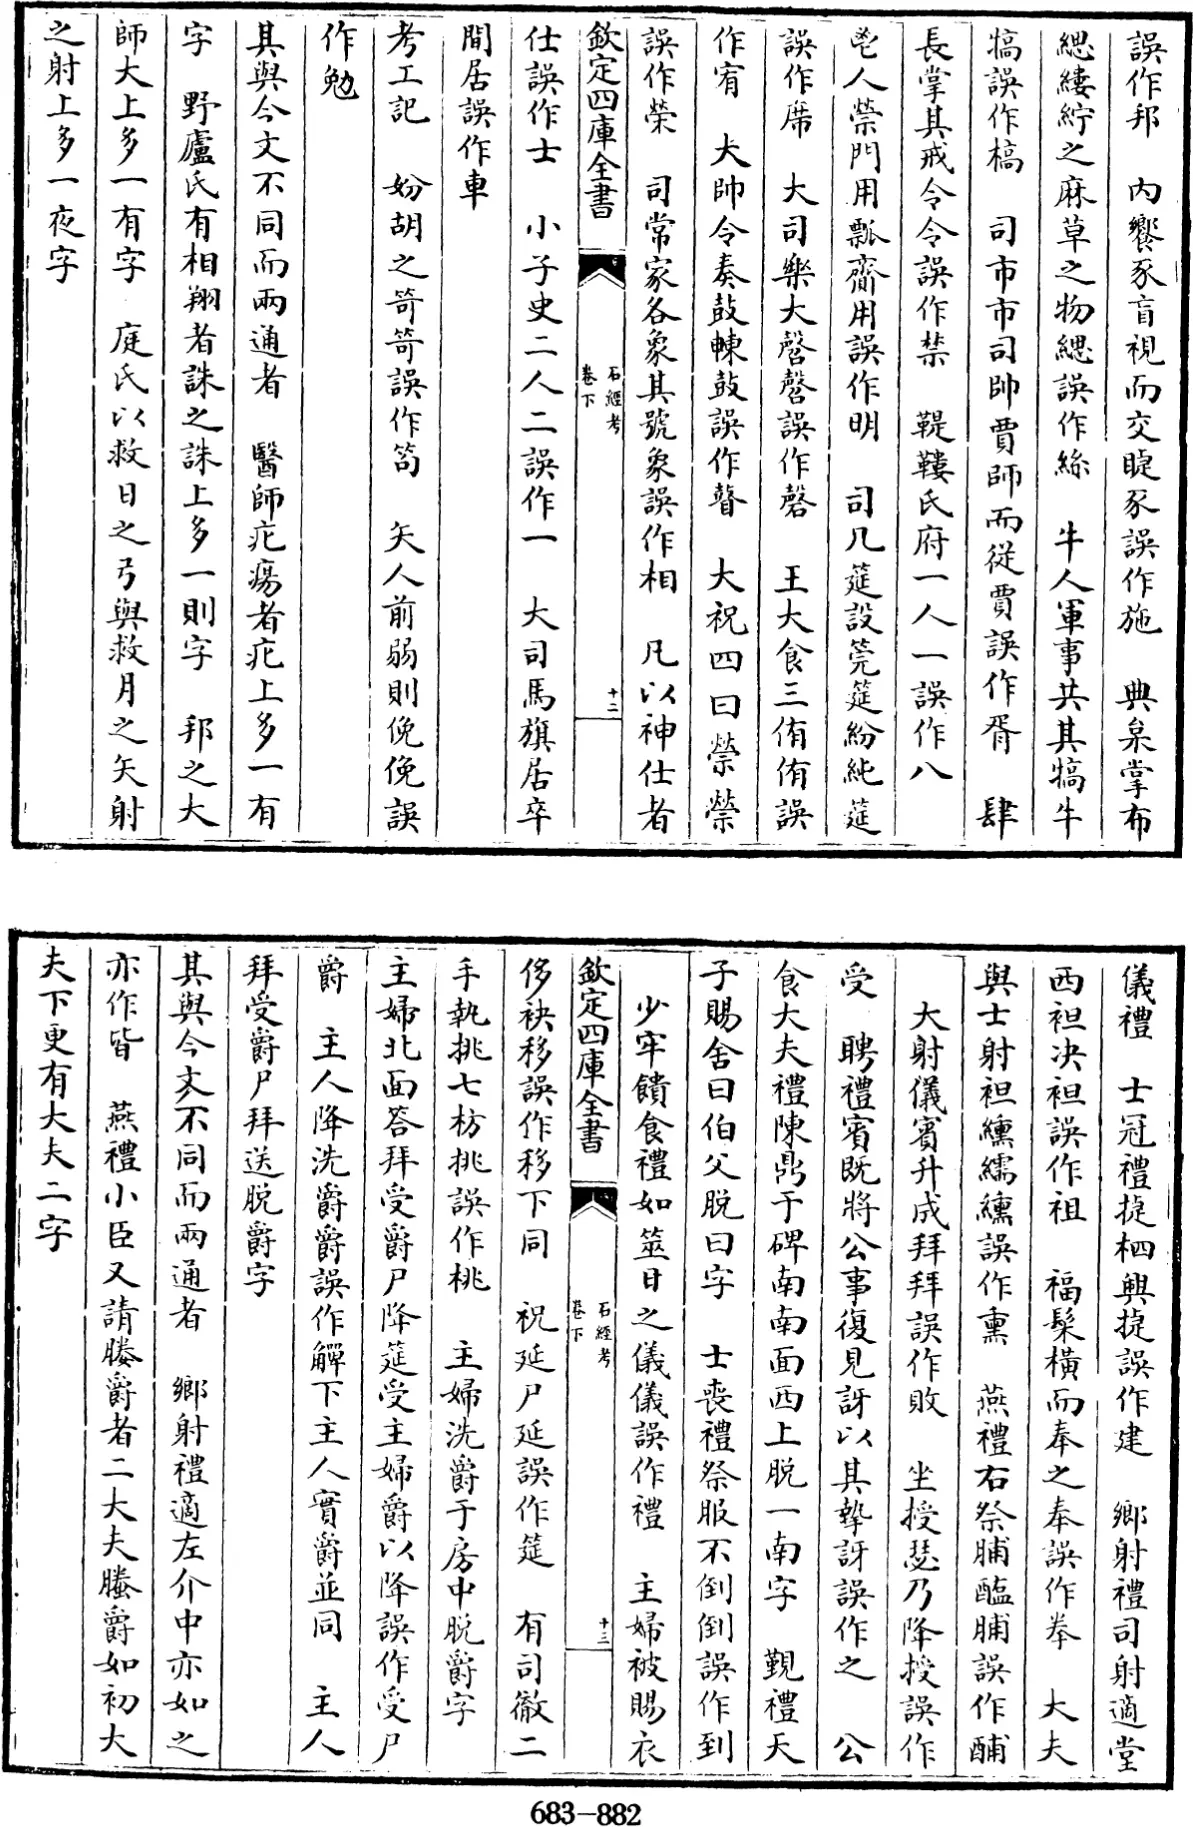 誤作邦　内饔豕盲視而交睫豕誤作施　典枲掌布
緦縷紵之麻草之物緦誤作絲　牛人軍事共其犒牛
犒誤作槁　司市市司帥賈師而從賈誤作胥　肆
長掌其戒令令誤作禁　鞮鞻氏府一人一誤作八
鬯人禜門用瓢齎用誤作明　司几筵設莞筵紛純筵
誤作席　大司樂大磬磬誤作磬　王大食三侑侑誤
作宥　大師帥令奏鼓朄鼓誤作瞽　大祝四曰禜禜
誤作榮　司常家各象其號象誤作相　凡以神仕者
欽定四庫全書　石經考　卷下　十二
仕誤作士　小子史二人二誤作一　大司馬旗居卒
間居誤作車
考工記　妢胡之笴笴誤作笱　矢人前弱則俛俛誤
作勉
其與今文不同而兩通者　醫師疕瘍者疕上多一有
字　野廬氏有相翔者誅之誅上多一則字　邦之大
師大上多一有字　庭氏以救日之弓與救月之矢射
之射上多一夜字
儀禮　士冠禮捷柶興捷誤作建　鄉射禮司射適堂
西袒决袒誤作祖　福髤橫而奉之奉誤作拳　大夫
與士射袒纁襦纁誤作熏　燕禮右祭脯醢脯誤作酺
大射儀賓升成拜拜誤作敗　坐授瑟乃降授誤作
受　聘禮賓既將公事復見訝以其摯訝誤作之　公
食大夫禮陳鼎于碑南南面西上脱一南字　覲禮天
子賜舍曰伯父脱曰字　士喪禮祭服不倒倒誤作到
少牢饋食禮如筮日之儀儀誤作禮　主婦被錫衣
欽定四庫全書　石經考　卷下　十三
侈袂移誤作移下同　祝延尸延誤作筵　有司徹二
手執挑匕枋挑誤作桃　主婦洗爵于房中脱爵字
主婦北面答拜受爵尸降筵受主婦爵以降誤作受尸
爵　主人降洗爵爵誤作觶下主人實爵並同　主人
拜受爵尸拜送脱爵字
其與今文不同而兩通者　鄉射禮適左个中亦如之
亦作皆　燕禮小臣又請媵爵者二大夫媵爵如初大
夫下更有大夫二字
683—882